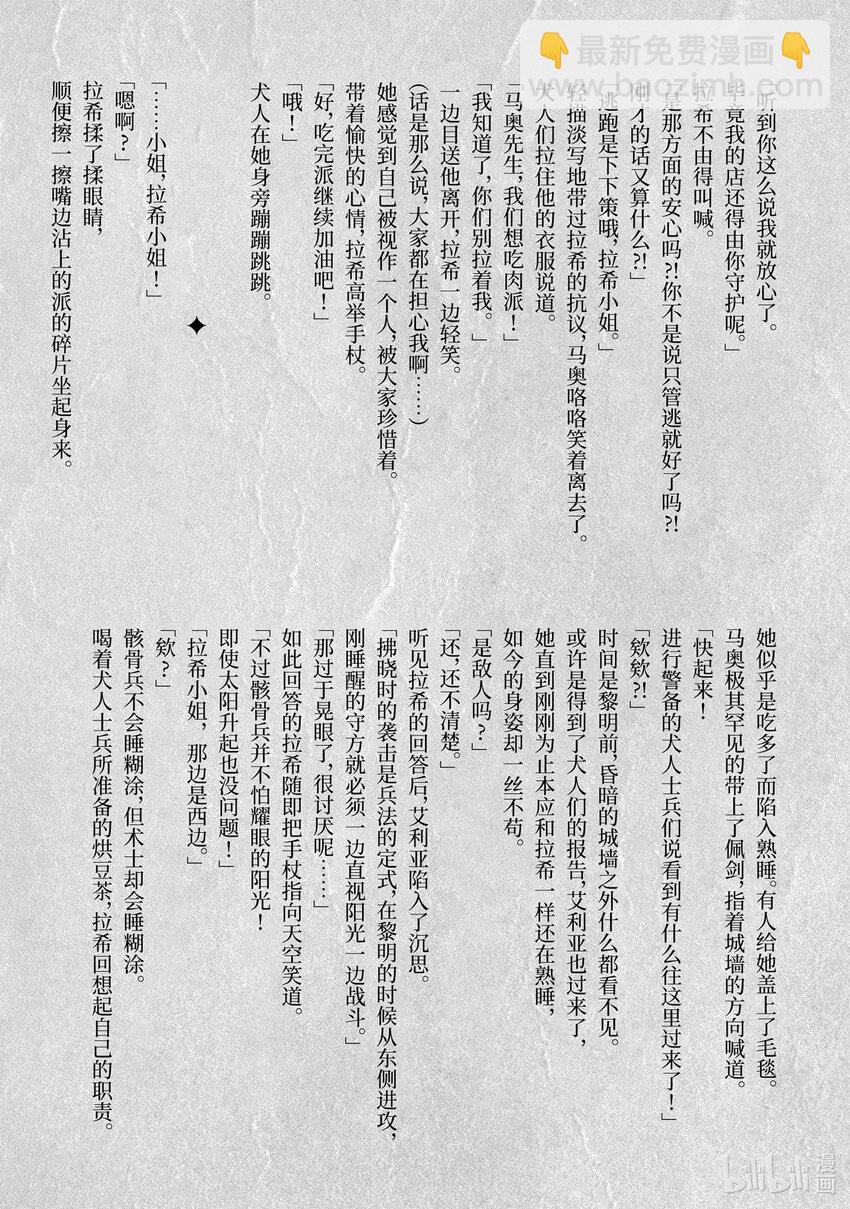 最新免费漫画
www.baozimh.com
听到你这么说我就放心了。
毕竟我的店还得由你守护呢。」
拉希不由得叫喊。
「是那方面的安心吗?!你不是说只管逃就好了吗?!
刚才的话又算什么?!」
「逃跑是下下策哦,拉希小姐。」
轻描淡写地带过拉希的抗议,马奥咯咯笑着离去了。
犬人们拉住他的衣服说道。
「马奥先生,我们想吃肉派!」
「我知道了,你们别拉着我。」
一边目送他离开,拉希一边轻笑。
(话是那么说,大家都在担心我啊……)
她感觉到自己被视作一个人,被大家珍惜着。
带着愉快的心情,拉希高举手杖。
「好,吃完派继续加油吧!」
「哦!」
犬人在她身旁蹦蹦跳跳。
✦
「……小姐,拉希小姐!」
「嗯啊?」
拉希揉了揉眼睛,
顺便擦一擦嘴边沾上的派的碎片坐起身来。
她似乎是吃多了而陷入熟睡。有人给她盖上了毛毯。
马奥极其罕见的带上了佩剑,指着城墙的方向喊道。
「快起来!
进行警备的犬人士兵们说看到有什么往这里过来了!」
「欸欸?!」
时间是黎明前,昏暗的城墙之外什么都看不见。
或许是得到了犬人们的报告,艾利亚也过来了,
她直到刚刚为止本应和拉希一样还在熟睡,
如今的身姿却一丝不苟。
「是敌人吗?」
「还,还不清楚。」
听见拉希的回答后,艾利亚陷入了沉思。
「拂晓时的袭击是兵法的定式,在黎明的时候从东侧进攻,
刚睡醒的守方就必须一边直视阳光一边战斗。」
「那过于晃眼了,很讨厌呢……」
如此回答的拉希随即把手杖指向天空笑道。
「不过骸骨兵并不怕耀眼的阳光!
即使太阳升起也没问题!」
「拉希小姐,那边是西边。」
「欸?」
骸骨兵不会睡糊涂,但术士却会睡糊涂。
喝着犬人士兵所准备的烘豆茶,拉希回想起自己的职责。
bilibili漫画